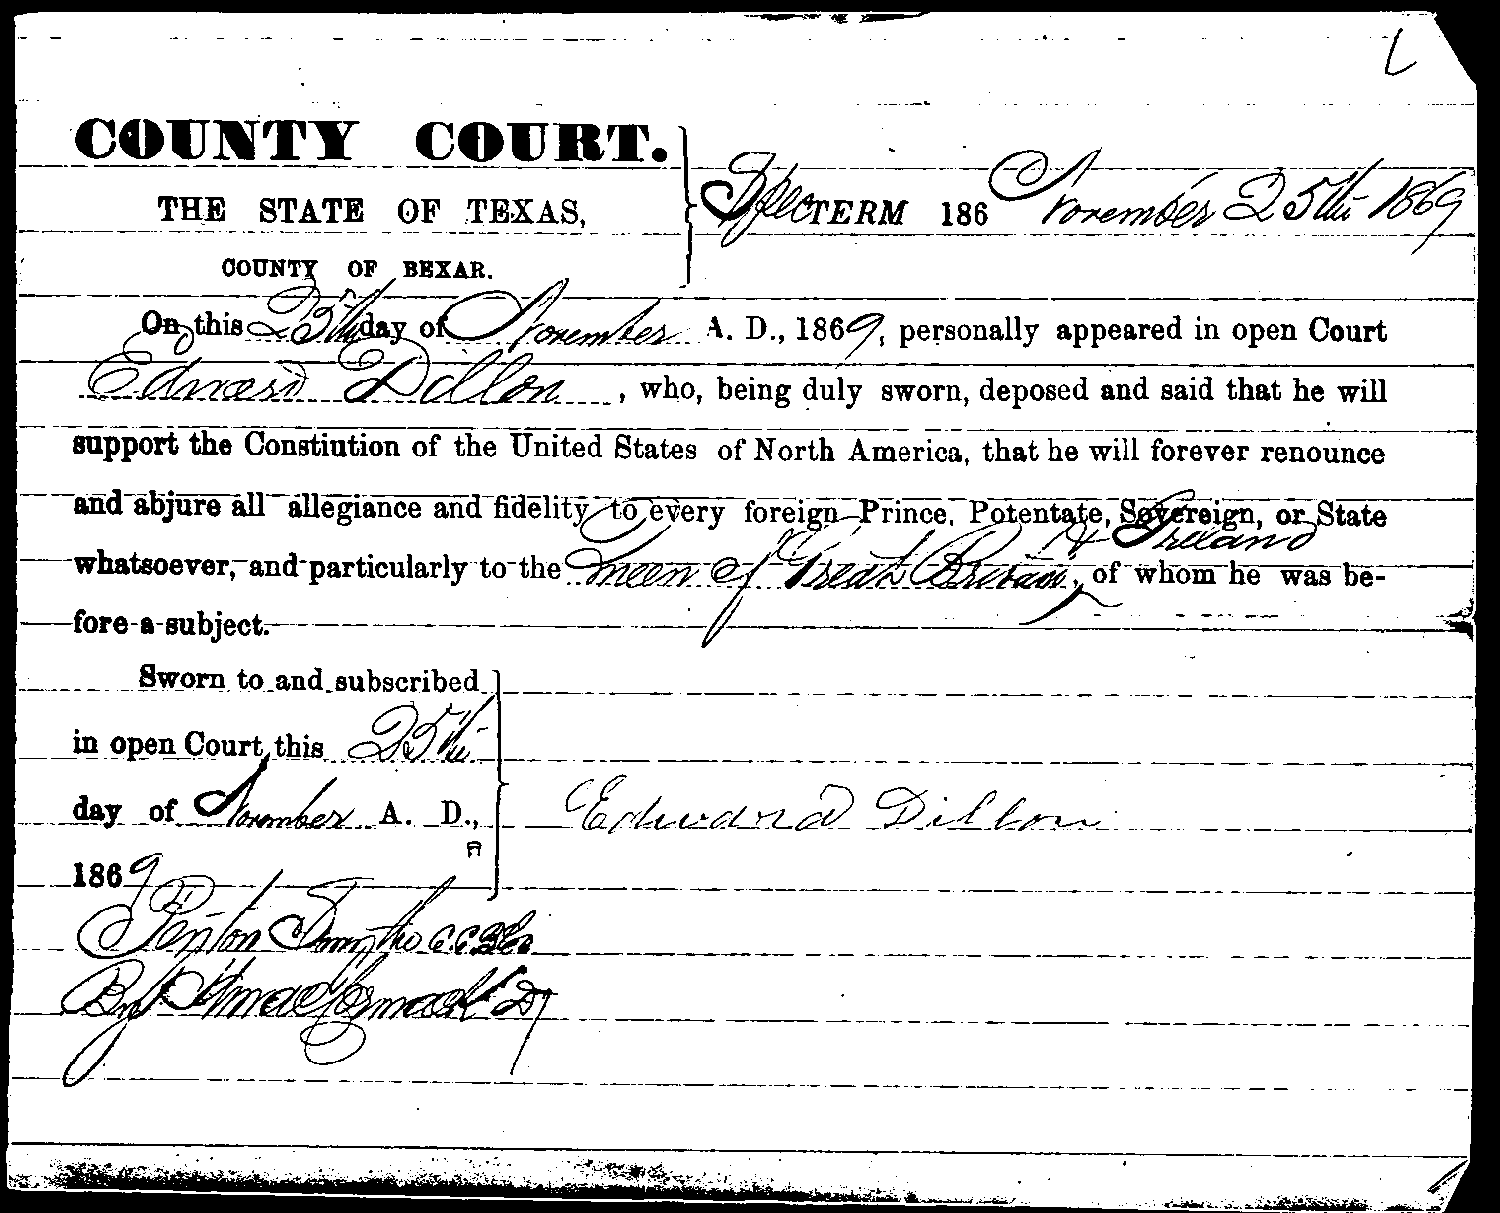 COUNTY COURT.
THE STATE OF TEXAS,
COUNTY OF BEXAR.
Spec TERM 186 November 25th 1869
On this 25th day of November A. D., 1869, personally appeared in open Court
Edward Dillon, who, being duly sworn, deposed and said that he will
support the Constiution of the United States of North America, that he will forever renounce
and abjure all allegiance and fidelity to every foreign Prince, Potentate, Sovereign, or State
whatsoever, and particularly to the Queen of Great Britain & Ireland, of whom he was be-
fore a subject.
Sworn to and subscribed
in open Court this 25th
day of November A. D.,
1869
Edward Dillon
Penton Smythe C.C.
By